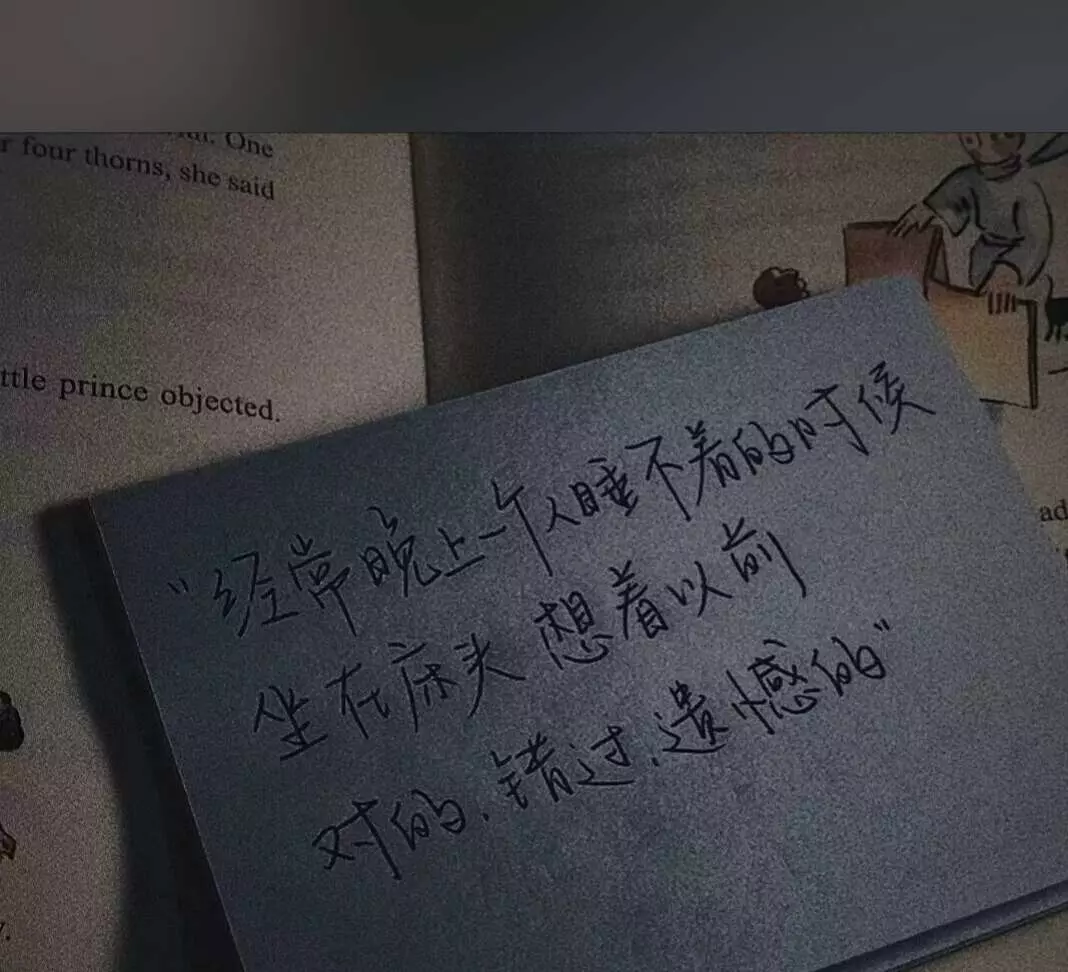 One
r four thorns, she said
ttle prince objected.
ad
"经常晚上一个人睡不着的时候
坐在床头 想着以前
对的、错过、遗憾的"